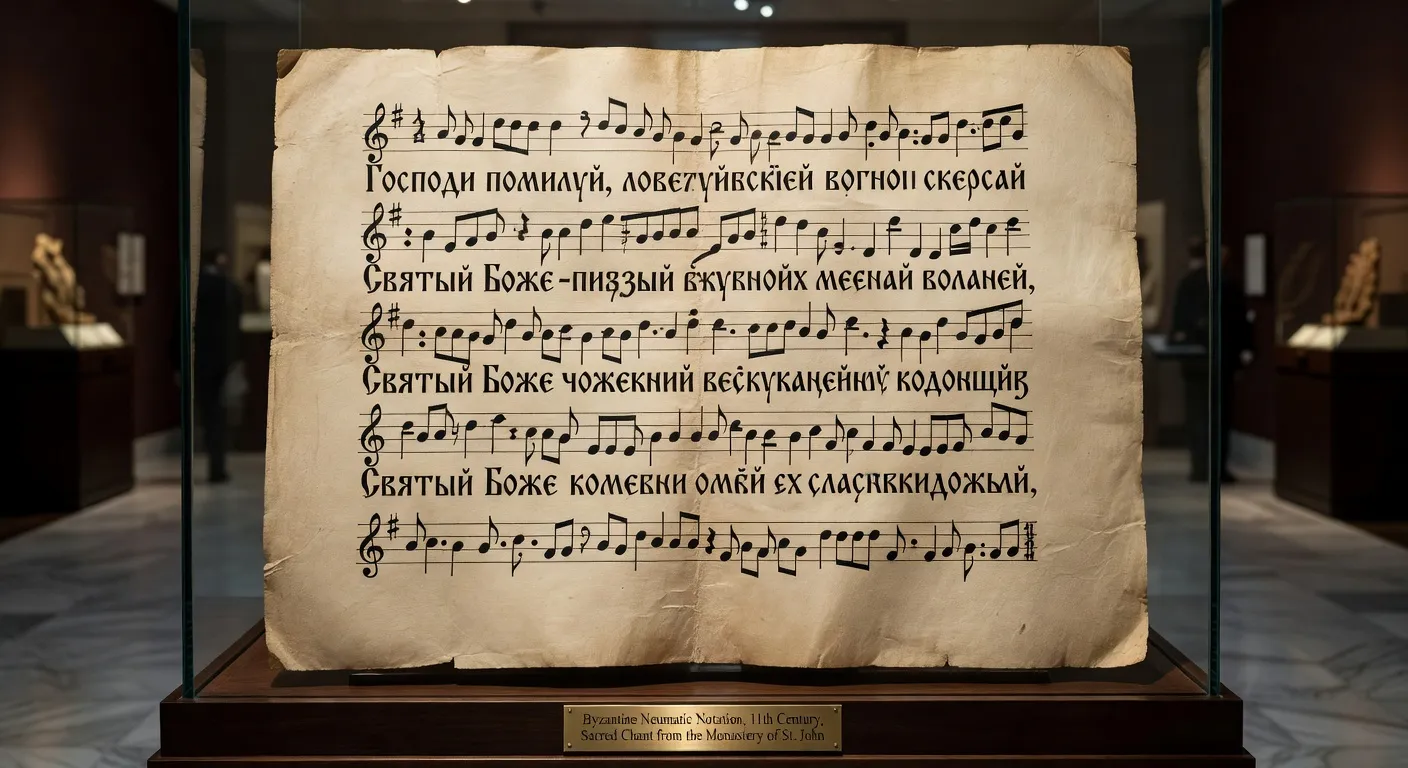 Господи помилуй, ловетуйвскїей вогнои скерсай
Святый Боже -пиззый вжувной мeeнай воланей,
Святый Боже чожекний
кодонщий
Святый Боже комевни омвй ех
Byzantine Neumatic Notation, 11th Century,
Sacred Chant from the Monastery of St. John